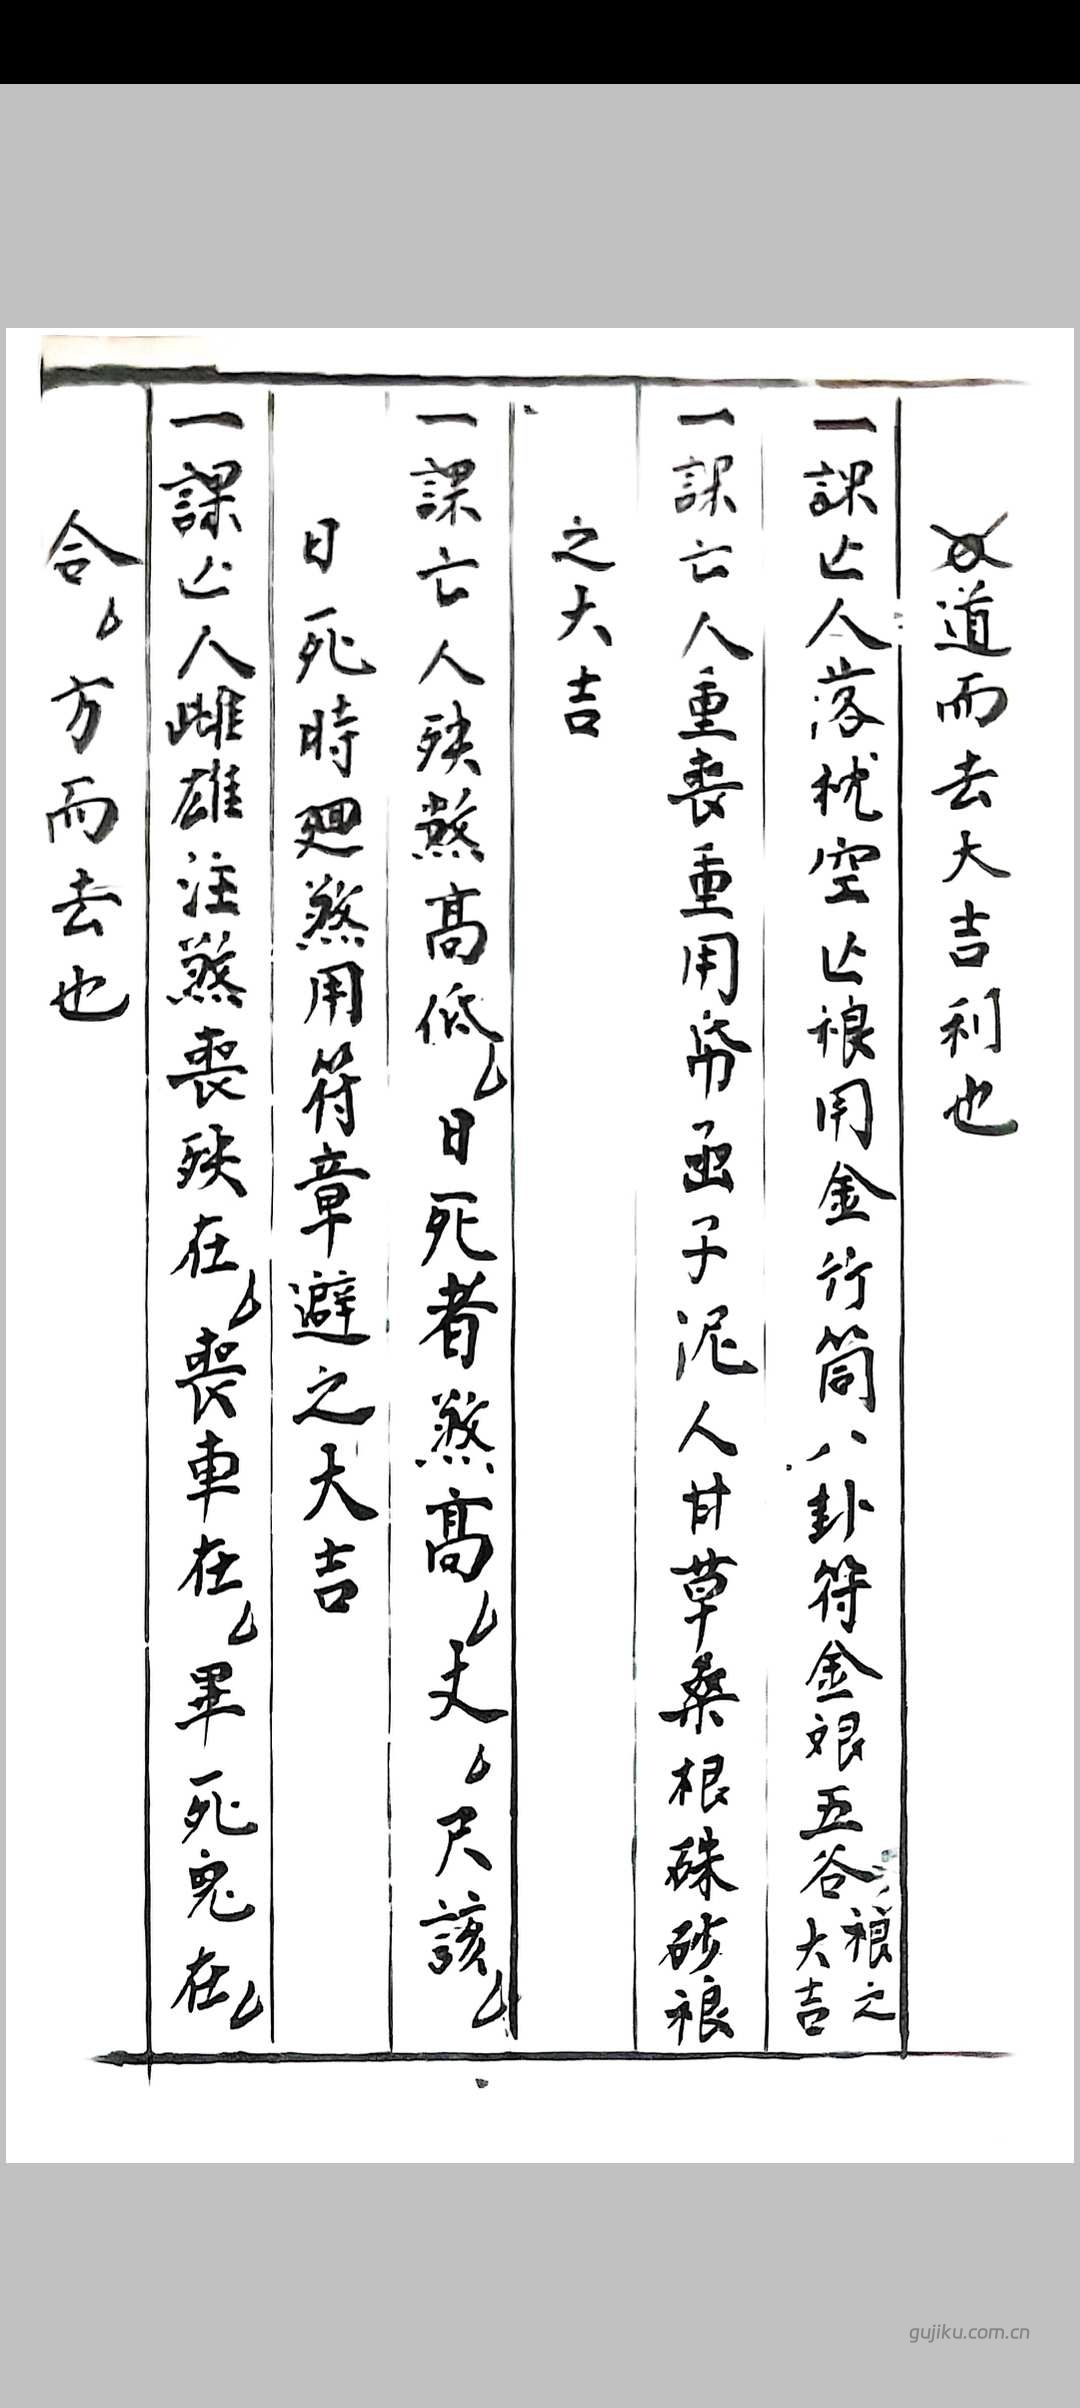 道而去大吉利也
一課亡人落枕空亡禳用金竹筒八卦符金銀五谷禳之大吉
一課亡人重喪重用帋函子泥人甘草桑根硃砂禳
之大吉
一課亡人殃煞高低日死者煞高丈尺該
日死時廻煞用符章避之大吉
一課亡人雌雄注煞喪殃在喪車在畢死鬼在
合方而去也
gujiku.com.cn